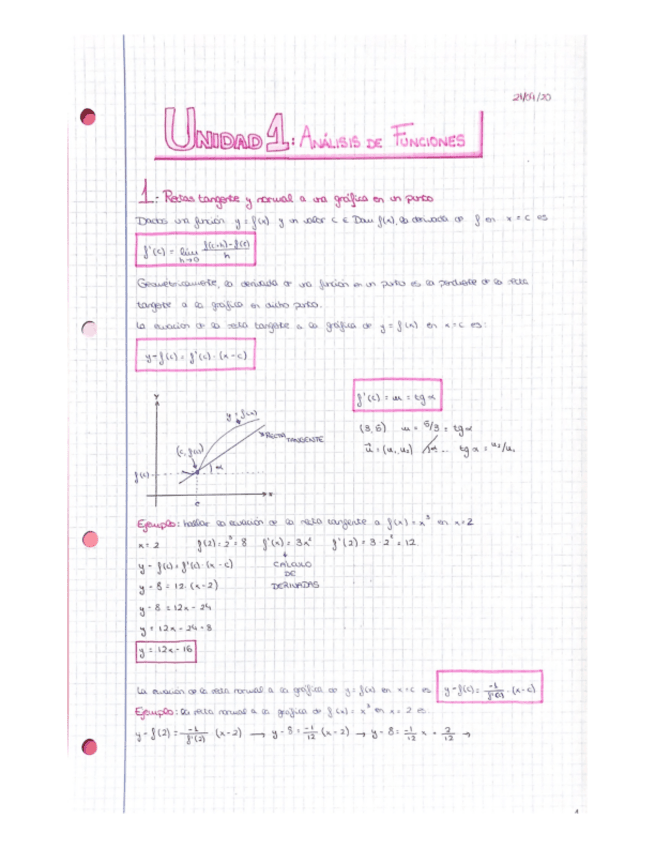 24/04/20
UNIDAD 1: ANÁLISIS DE FUNCIONES
1.- Rectas tangente y normal a una gráfica en un punto
Dados una función y = f(x) y un valor c ∈ Dom f(x), la derivada de f en x = c es
f'(c) = lim h→0 f(c+h)-f(c) / h
Geométricamente, la derivada de una función en un punto es la pendiente de la recta
tangente a la gráfica en dicho punto.
La ecuación de la recta tangente a la gráfica de y = f(x) en x = c es:
y - f(c) = f'(c) · (x - c)
f'(c) = m = tg α
y
y = f(x)
RECTA TANGENTE
(c, f(c))
α
f(c)
x
c
m = 5/3 = tg α
u⃗ = (u₁, u₂) tg α = u₂/u₁
Ejemplo: hallar la ecuación de la recta tangente a f(x) = x³ en x = 2
x = 2 f(2) = 2³ = 8 f'(x) = 3x² f'(2) = 3 · 2² = 12
y - f(c) = f'(c) · (x - c) CÁLCULO
DE
y - 8 = 12 · (x - 2) DERIVADAS
y - 8 = 12x - 24
y = 12x - 24 + 8
y = 12x - 16
La ecuación de la recta normal a la gráfica de y = f(x) en x = c es y - f(c) = -1/f'(c) · (x - c)
Ejemplo: la recta normal a la gráfica de f(x) = x³ en x = 2 es:
y - f(2) = -1/f'(2) (x - 2) → y - 8 = -1/12 (x - 2) → y - 8 = -1/12 x + 2/12 →